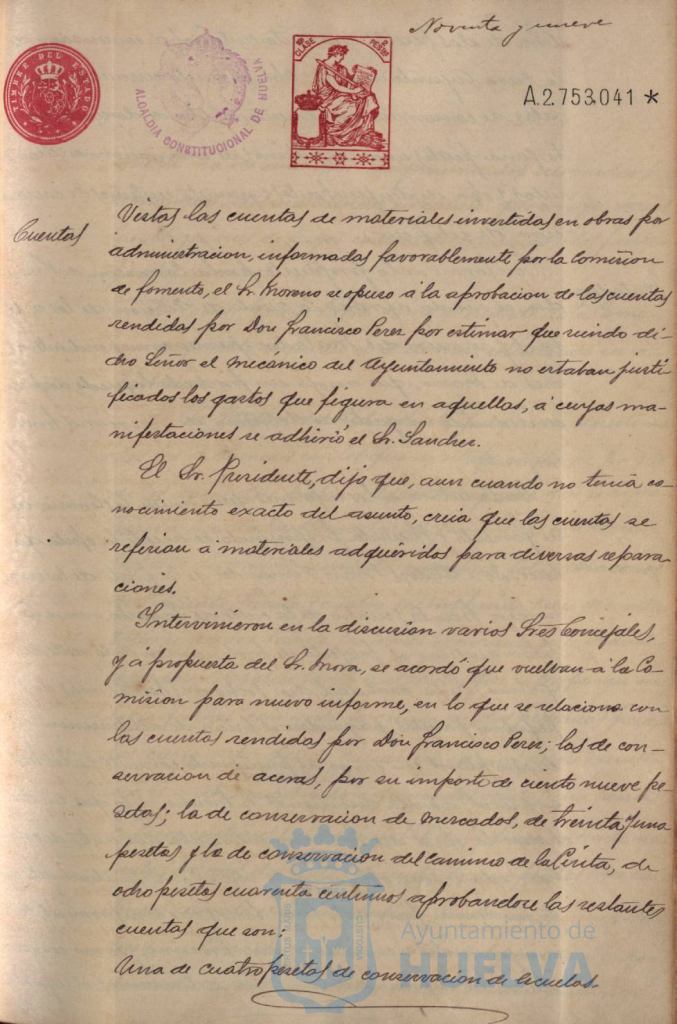 Noventa y nueve
TIMBRE DEL ESTADO
ALCALDIA CONSTITUCIONAL DE HUELVA
10ª CLASE
2 PESETAS
A.2.753.041 *
Cuentas
Vistas las cuentas de materiales invertidas en obras por
administracion, informadas favorablemente por la Comision
de fomento, el Sr. Moreno se opuso á la aprobacion de las cuentas
rendidas por Don Francisco Perez por estimar que siendo di-
cho Señor el mecánico del Ayuntamiento no estaban justi-
ficados los gastos que figura en aquellas, á cuyas ma-
nifestaciones se adhirió el Sr. Sanchez.
El Sr. Presidente, dijo que, aun cuando no tenia co-
nocimiento exacto del asunto, creia que las cuentas se
referian á materiales adquéridos para diversas repara-
ciones.
Intervinieron en la discusion varios Sres Concejales,
y á propuesta del Sr. Mora, se acordó que vuelvan á la Co-
mision para nuevo informe, en lo que se relaciona con
las cuentas rendidas por Don Francisco Perez; las de con-
servacion de aceras, por su importe de ciento nueve pe-
setas; la de conservacion de mercados, de treinta y una
pesetas y la de conservacion del camino de la Cinta, de
ocho pesetas cuarenta centimos aprobandose las restantes
cuentas que son:
Una de cuatro pesetas de conservacion de escuelas.
Ayuntamiento de
HUELVA